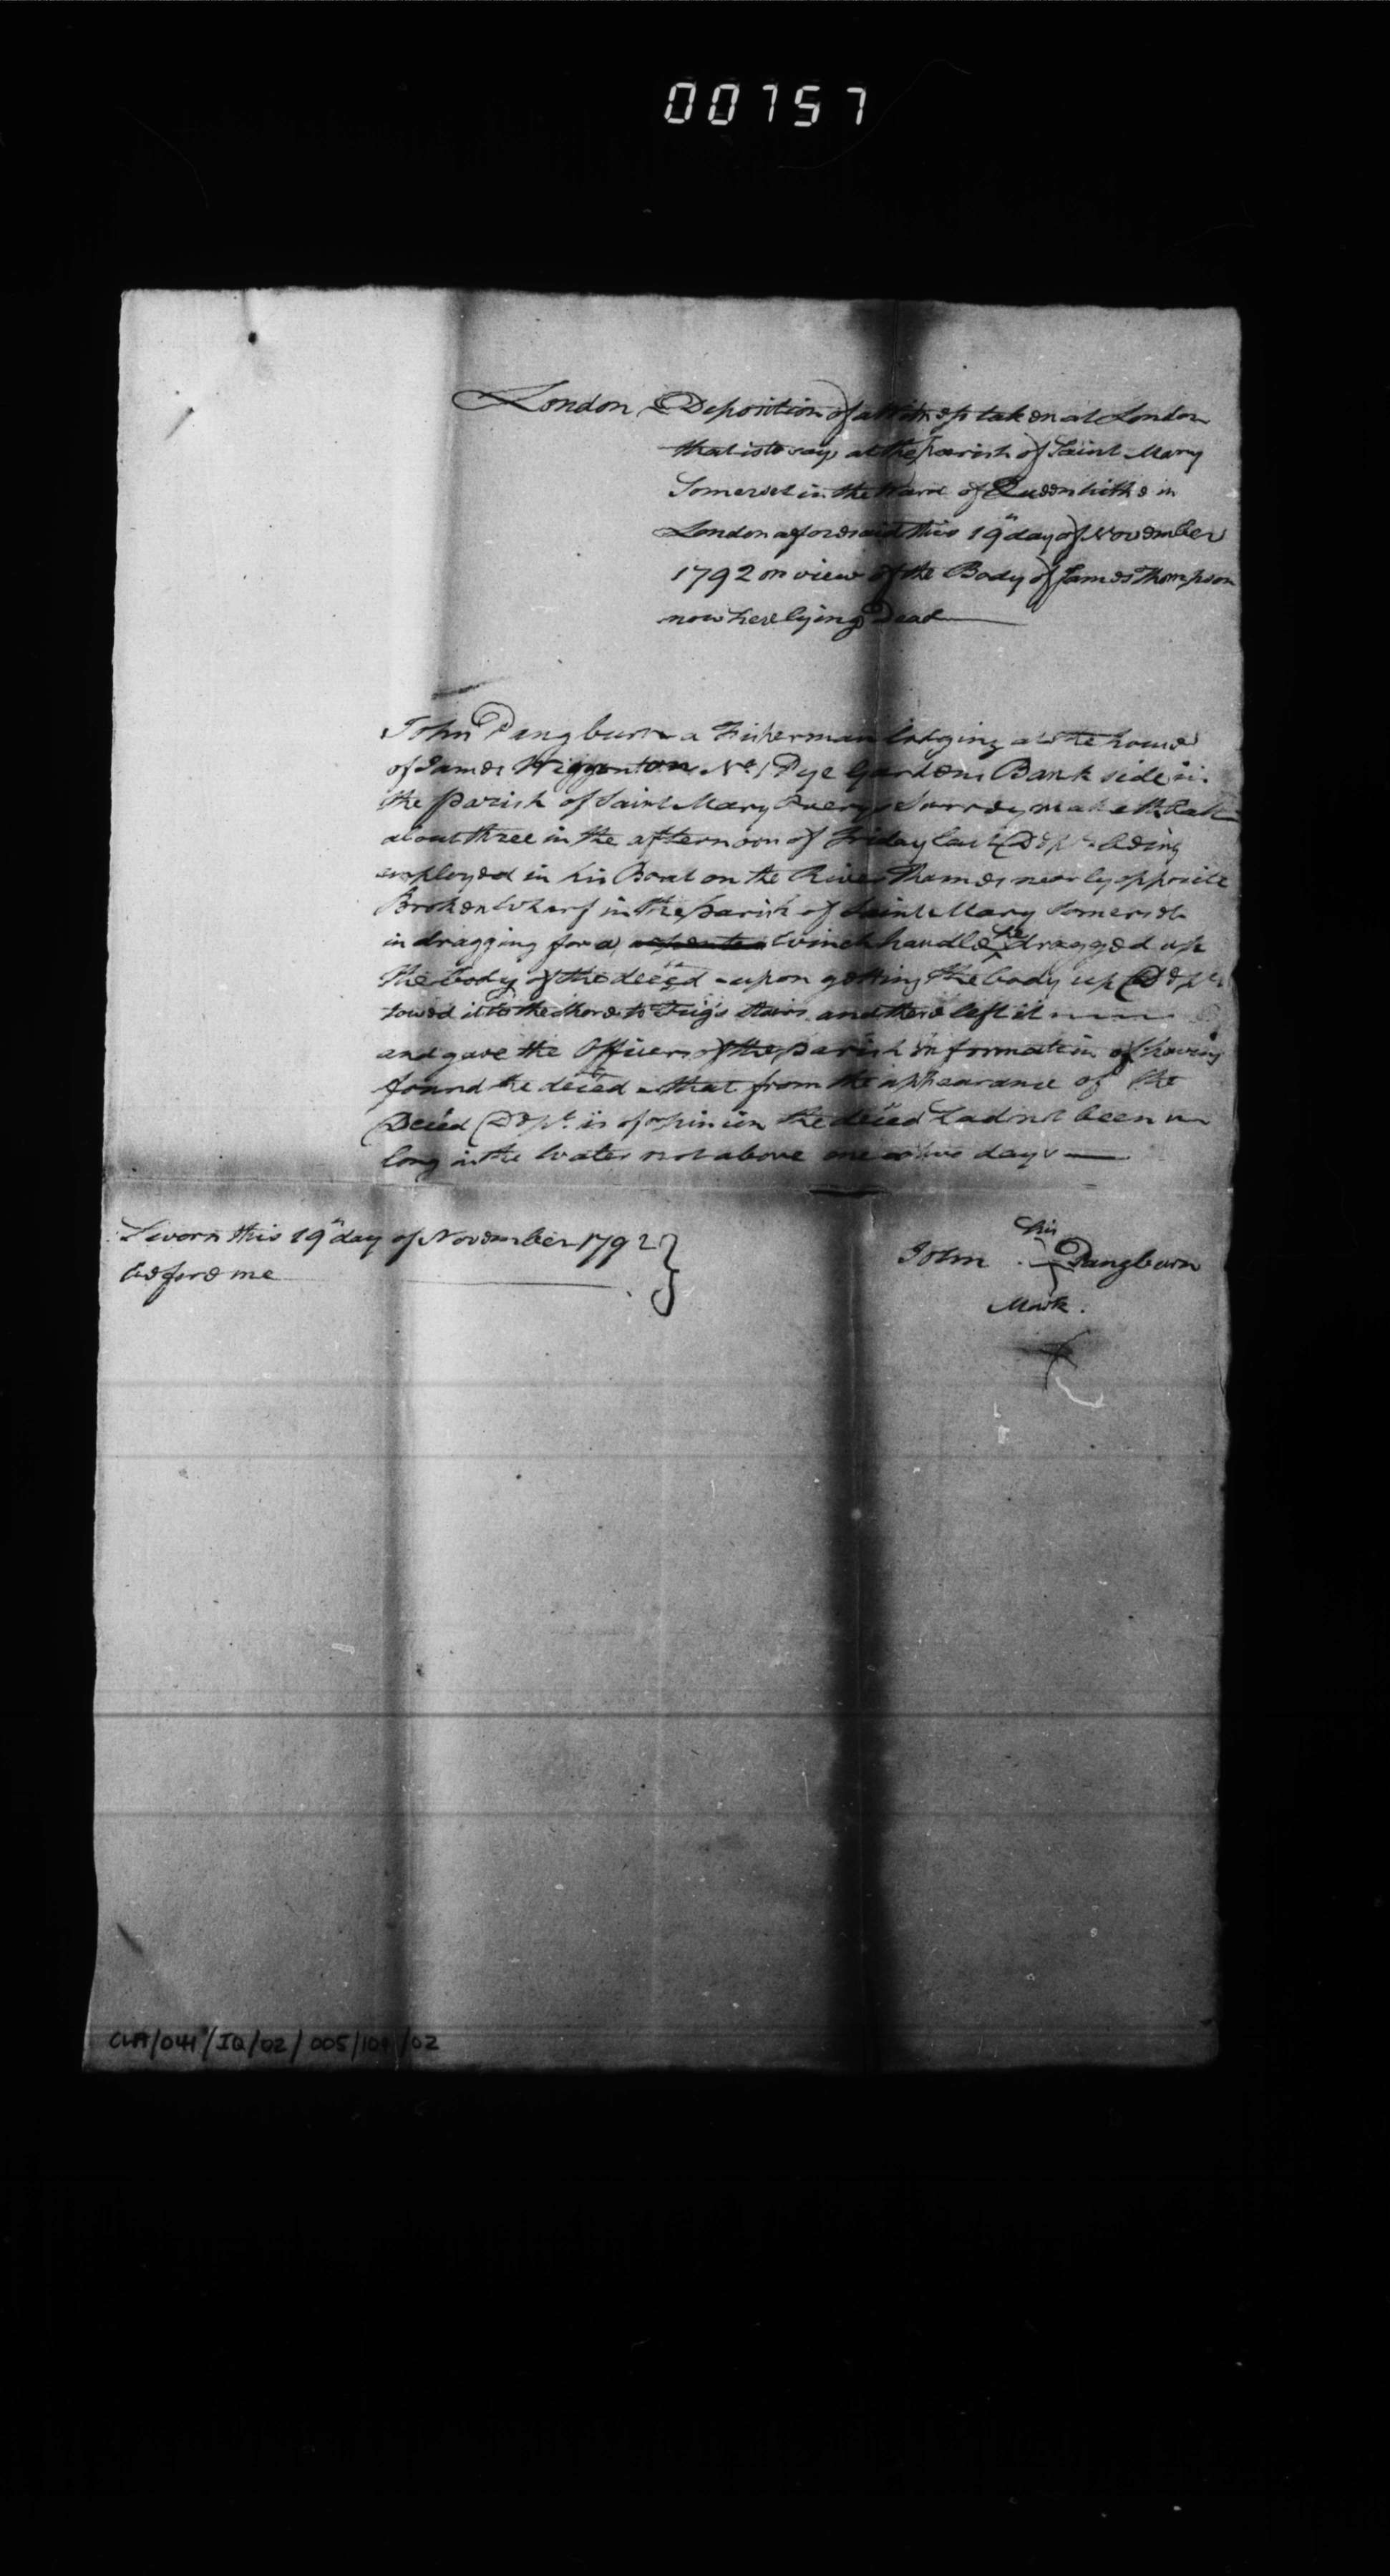 00757
London Deposition of a Witness taken at London
that is to say, at the parish of Saint Mary
Somerset in the Ward of Queenhithe in
London aforesaid this 19th day of November
1792 on view of the Body of James Thompson
now here lying Dead
John Pangburn a Fisherman lodging at the house
of James No. 1 Pye Gardens Bank side in
the Parish of Saint Mary Overys Surrey maketh Oath
about three in the afternoon of Friday last Dept. being
employed in his Boat on the River Thames nearly opposite
Broken Wharf in the parish of Saint Mary Somerset
in dragging for a winch handle he dragged up
the body of the deced - upon getting the body up Dept.
towed it to the shore to Trig's stairs and there left it
and gave the Officers of the parish information of having
found the deced - that from the appearance of the
Deced Dept. is of opinion the deced had not been
long in the Water not above one or two days
Sworn this 19th day of November 1792
before me
his
John Pangburn
Mark.
CLA/041/IQ/02/005/109/02